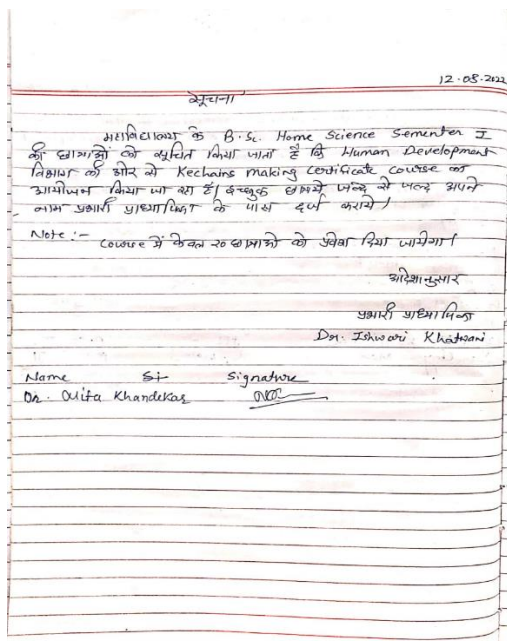 12.08.2022
सूचना
महाविद्यालय के B.Sc. Home Science Sementer I
की छात्राओं को सूचित किया जाता है कि Human Development
विभाग की ओर से Kechains making Certificate Course का
आयोजन किया जा रहा है। इच्छुक छात्रायें जल्द से जल्द अपने
नाम प्रभारी प्राध्यापिका के पास दर्ज करायें।
Note :-
Course में केवल 20 छात्राओं को प्रवेश दिया जायेगा।
आदेशानुसार
प्रभारी प्राध्यापिका
Dr. Ishwari Khatwani
Name Signature
Dr. Khandekar